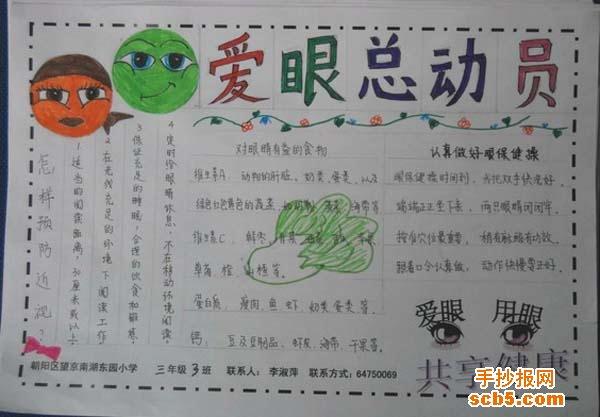 爱眼总动员
怎样预防近视?
1 适当的阅读距离,30厘米或以上
2 在光线充足的环境下阅读工作
3 保证充足的睡眠,合理的饮食和锻炼
4 定时给眼睛休息,不在移动环境阅读
对眼睛有益的食物
维生素A:动物的肝脏、奶类、蛋类、以及
绿色红色黄色的蔬菜、海带等
维生素C:鲜枣、
草莓、橙、山楂等。
蛋白质:瘦肉、鱼、虾、奶类、蛋类等
钙:豆及豆制品、虾皮、海带、干果等。
认真做好眼保健操
眼保健操时间到,先把双手快洗好。
端端正正坐下来,两只眼睛闭闭牢。
按准穴位最重要,稍有酸胀有功效。
跟着口令认真做,动作快慢要正好。
爱眼 用眼
共享健康
朝阳区望京南湖东园小学 三年级3班 联系人:李淑萍 联系方式:64750069
手抄报网
scb5.com